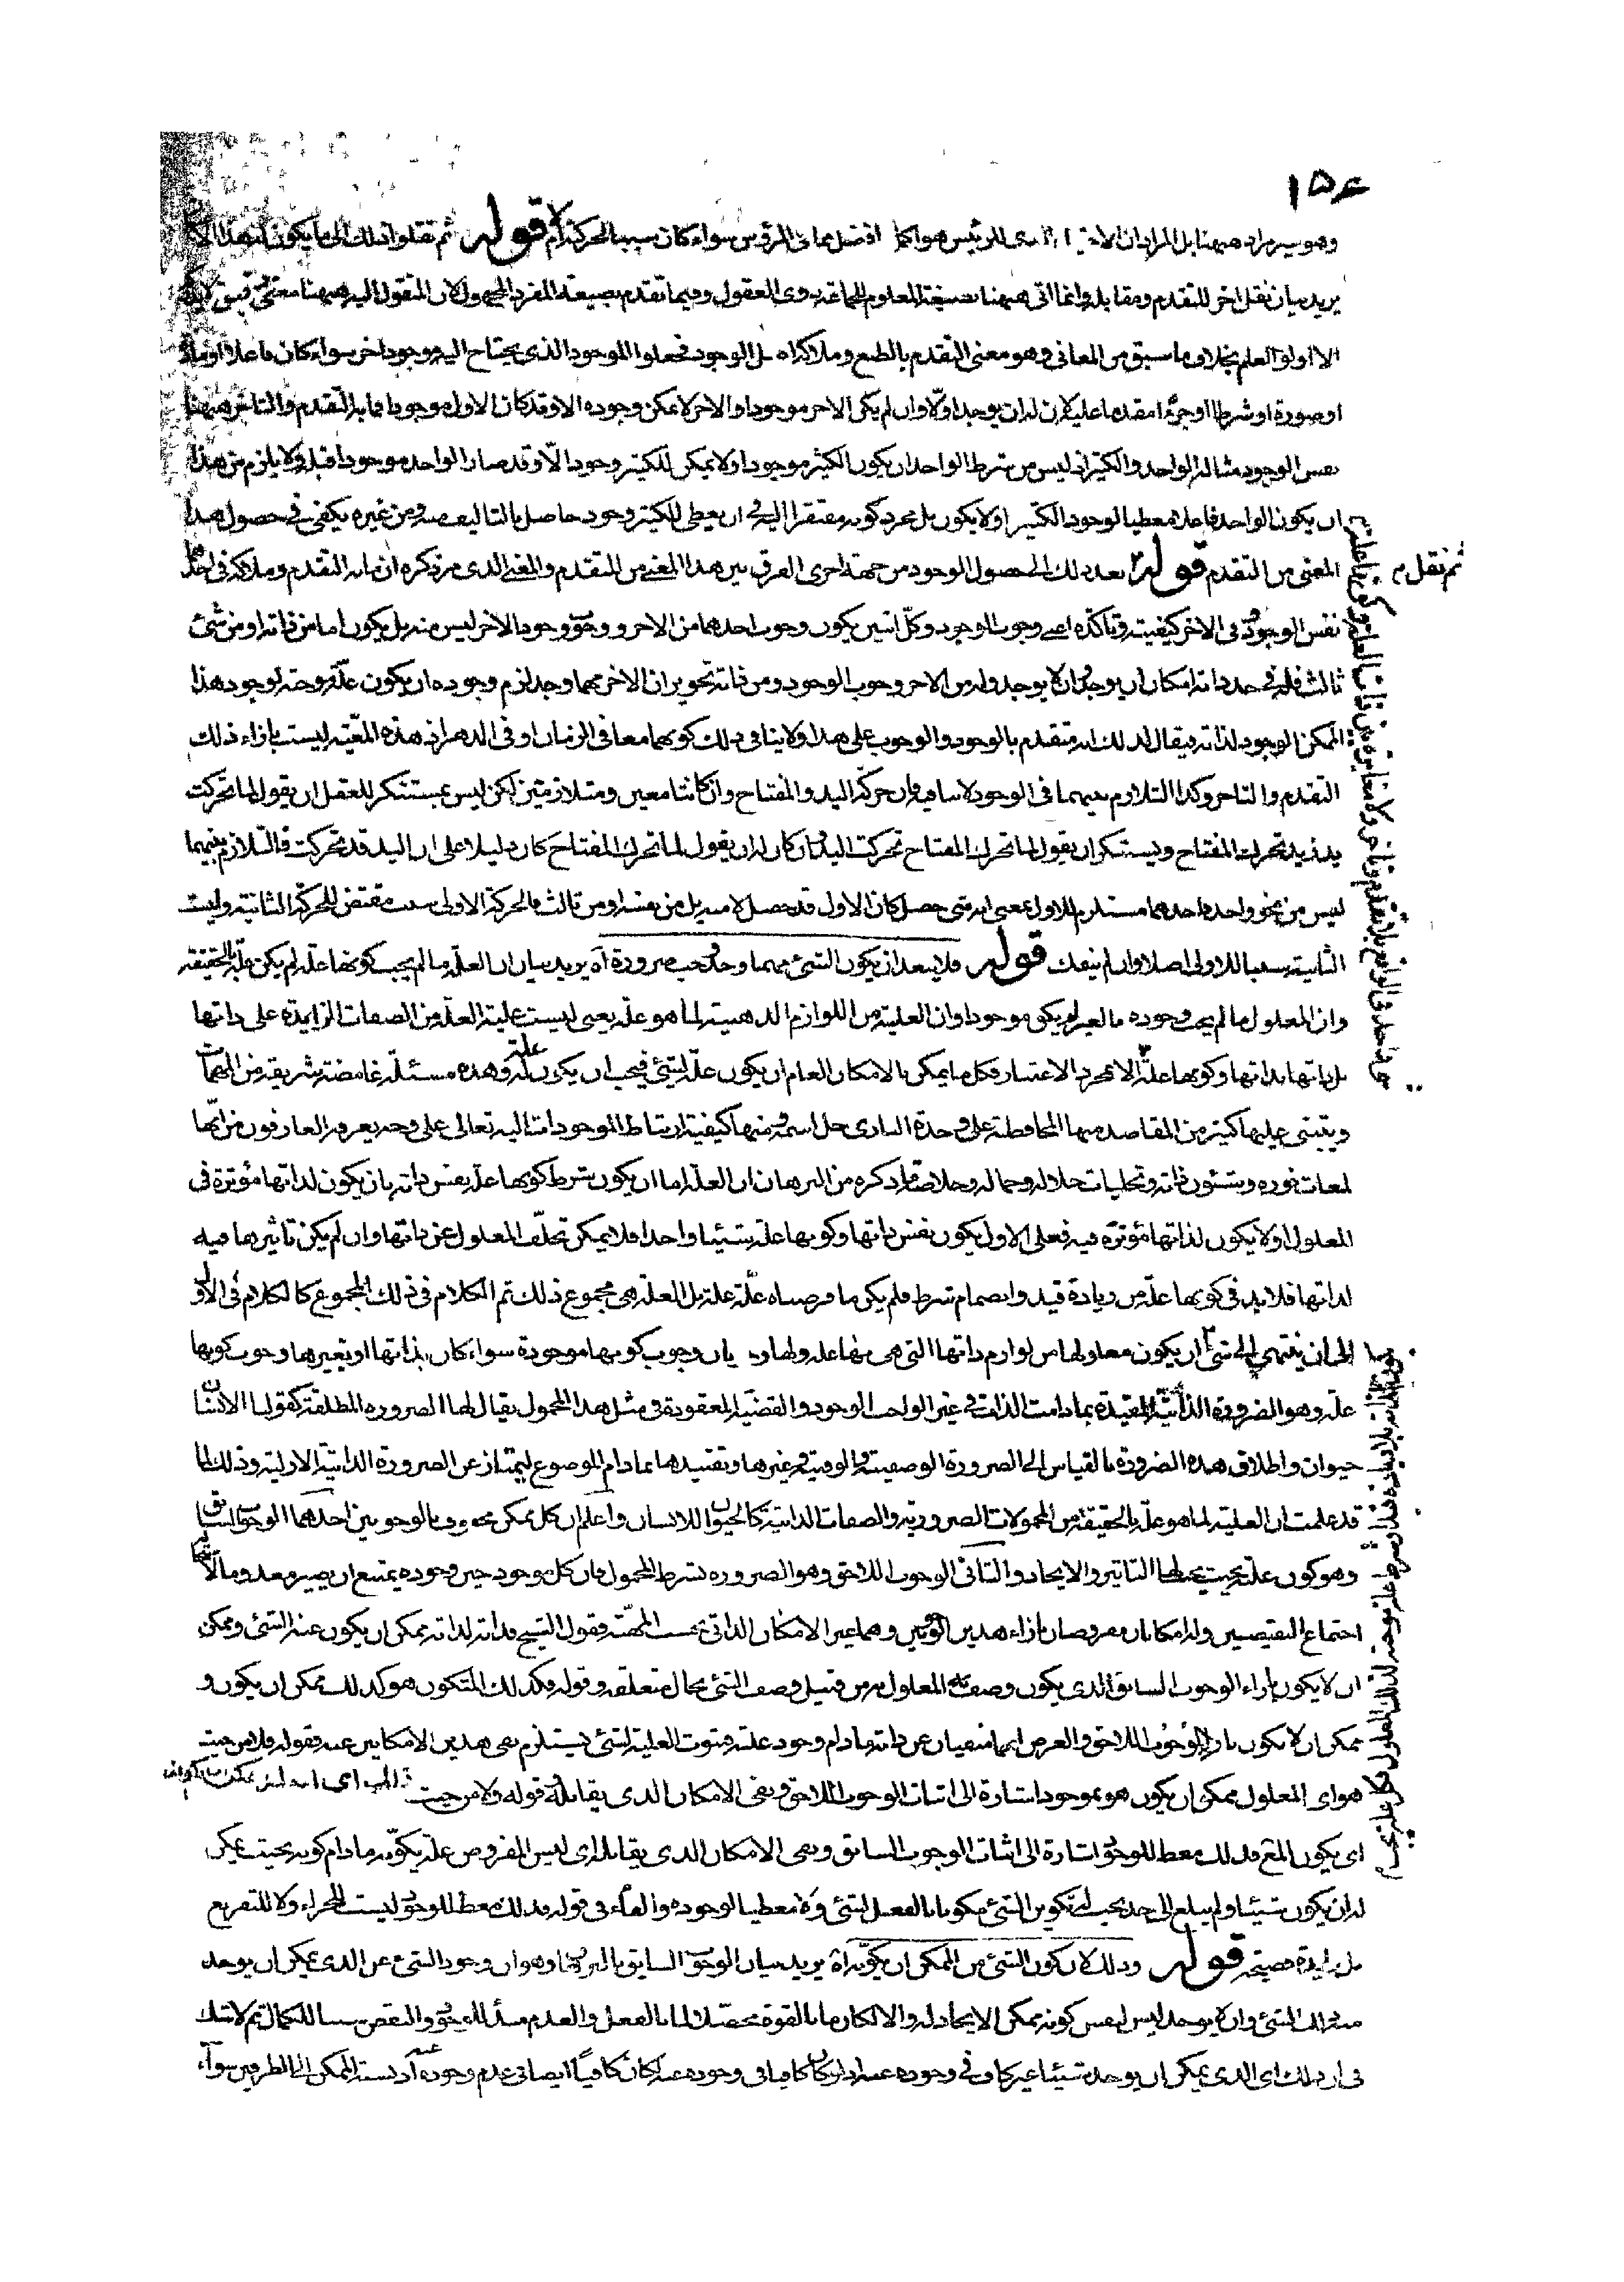 ١٥٤
وهو مراده ههنا بل المراد ان الاختيار الذى للرئيس هو اكمل افضل مما فى المرؤس سواء كان سببا لحركته ام لا قوله ثم نقلوا ذلك الى ما يكون له هذا
يريد بيان نقل اخر للتقدم ومقابله وانما اتى ههنا بصيغة المعلوم للجماعة ذوى العقول وفيما تقدم بصيغة المفرد المجهول لان المنقول اليه ههنا معنى دقيق لا يدركه
الا اولوا العلم بخلاف ما سبق من المعانى وهو معنى التقدم بالطبع وملاكه اه بل الوجود فجعلوا الموجود الذى يحتاج اليه موجود اخر سواء كان فاعلا او مادة
او صورة او شرطا او جزءا مقدما عليه لان له ان يوجد اولا وان لم يكن الاخر موجودا والاخر لا يمكن وجوده الا وقد كان الاول موجودا فما به التقدم والتاخر ههنا
نفس الوجود مثاله الواحد والكثير انه ليس من شرط الواحد ان يكون الكثير موجودا ولا يمكن للكثير وجود الا وقد صار الواحد موجودا قبله ولا يلزم من هذا
ان يكون الواحد فاعلا معطيا لوجود الكثير او لا يكون بل مجرد كونه مفتقرا اليه فى ان يعطى للكثير وجود حاصل بالتاليف منه ومن غيره يكفى فى حصول هذا
المعنى من التقدم قوله ثم نقل بعد ذلك الى حصول الوجود من جهة اخرى الفرق بين هذا المعنى من التقدم والمعنى الذى مر ذكره ان ما به التقدم وملاكه فى احدهما
نفس الوجود وفى الاخر كيفيته وتاكده اعنى وجوب الوجود وكل اثنين يكون وجوب احدهما من الاخر ووجوب وجود الاخر ليس منه بل يكون اما من ذاته او من شئ
ثالث فله فى حد ذاته امكان ان يوجد وان لا يوجد وله من الاخر وجوب الوجود ومن ذاته تجويز ان الاخر مهما وجد لزم وجوده ان يكون علة موجبة لوجود هذا
الممكن الوجود لذاته فيقال لذلك انه متقدم بالوجود والوجوب على هذا ولا ينافى ذلك كونهما معا فى الزمان او فى الدهر اذ هذه المعية ليست بازاء ذلك
التقدم والتاخر وكذا التلازم بينهما فى الوجود لا ينافيه فان حركة اليد والمفتاح وان كانتا معين ومتلازمتين لكن ليس بمستنكر للعقل ان يقول لما تحركت
يد زيد تحرك المفتاح ويستنكر ان يقول لما تحرك المفتاح تحركت اليد وان كان له ان يقول لما تحرك المفتاح كان دليلا على ان اليد قد تحركت فالتلازم بينهما
ليس من نحو واحد فاحدهما مستلزم للاول بمعنى انه متى حصل كان الاول قد حصل لا منه بل من نفسه او من ثالث فالحركة الاولى سبب مقتض للحركة الثانية وليست
الثانية سببا للاولى اصلا وان لم ينفك قوله فلا يبعد ان يكون الشئ مهما وجد وجب ضرورة آه يريد بيان ان العلة ما لم يجب كونها علة لم يكن علة بالحقيقة
وان المعلول ما لم يجب وجوده بالعلة لم يكن موجودا وان العلية من اللوازم الذهنية لما هو علة يعنى ليست علية العلة من الصفات الزايدة على ذاتها
بل ذاتها بذاتها وكونها علة الا بمجرد الاعتبار فكل ما يمكن بالامكان العام ان يكون علة لشئ فيجب ان يكون علة له وهذه مسئلة غامضة شريقة من المهمات
ويبتنى عليها كثير من المقاصد منها المحافظة على وحدة البارى جل اسمه ومنها كيفية ارتباط الموجودات اليه تعالى على وجه يعرفه العارفون من انها
لمعات نوره وشئون ذاته وتجليات جلاله وجماله وخلاصة ما ذكره من البرهان ان العلة اما ان يكون شرط كونها علة نفس ذاته بان يكون لذاتها مؤثرة فى
المعلول او لا يكون لذاتها مؤثرة فيه فعلى الاول يكون نفس ذاتها وكونها علة شيئا واحدا فلا يمكن تخلف المعلول عن ذاتها وان لم يكن تاثيرها فيه
لذاتها فلا بد فى كونها علة من زيادة قيد وانضمام شرط فلم يكن ما فرضناه علة علة بل العلة هى مجموع ذلك ثم الكلام فى ذلك المجموع كالكلام فى الاول
الى ان ينتهى الى شئ ان يكون معلولها من لوازم ذاتها التى هى بها علة ولها وجوبان وجوب كونها موجودة سواء كان بذاتها او بغيرها ووجوب كونها
علة وهو الضرورة الذاتية المقيدة بما دامت الذات فى غير الواجب الوجود والقضية المعقودة فى مثل هذا المحمول يقال لها الضرورة المطلقة كقولنا الانسان
حيوان واطلاق هذه الضرورة بالقياس الى الضرورة الوصفية والوقتية وغيرها وتقييدها بما دام الموضوع ليمتاز عن الضرورة الذاتية الازلية وذلك لما
قد علمت ان العلية لما هو علة بالحقيقة من المحمولات الضرورية والصفات الذاتية كالحيوان للانسان واعلم ان كل ممكن محفوف بالوجوبين احدهما الوجوب السابق
وهو كون علته بحيث يجب لها التاثير والايجاد والثانى الوجوب اللاحق وهو الضرورة بشرط المحمول فان كل موجود حين وجوده يمتنع ان يصير معدوما لاستحالة
اجتماع النقيضين وله امكانان مفروضان بازاء هذين الوجوبين وهما غير الامكان الذاتى بحسب المهية فقول الشيخ فذاته لذاته يمكن ان يكون عنه الشئ ويمكن
ان لا يكون بازاء الوجوب السابق الذى يكون وصف المعلول به من قبيل وصف الشئ بحال متعلقه وقوله وكذلك المتكون هو كذلك يمكن ان يكون و
يمكن ان لا يكون بازاء الوجوب اللاحق والغرض انهما منفيان عن ذاته ما دام وجود علته وثبوت العلية لشئ يستلزم نفى هذين الامكانين عنه فقوله فلا من حيث
هو اى المعلول يمكن ان يكون هو بموجود اشارة الى اثبات الوجوب اللاحق ونفى الامكان الذى يقابله وقوله ولا من حيث
اى يكون الشئ فذلك معط للوجود اشارة الى اثبات الوجوب السابق ونفى الامكان الذى يقابله اى ليس المفروض علة يكونه ما دام كونه بحيث يمكن
له ان يكون شيئا ولم يبلغ الى حد يجب له تكوين الشئ مكونا بالفعل لشئ ومعطيا لوجوده والفاء فى قوله فذلك معط للوجود ليست للجزاء ولا للتفريع
بل زايدة فصيحة قوله وذلك لان كون الشئ من الممكن ان يكونه آه يريد بيان الوجوب السابق بالبرهان وهو ان وجود الشئ عن الذى يمكن ان يوجد
منه ذلك الشئ وان لا يوجد ليس لنفس كونه ممكن الايجاد له والا لكان ما بالقوة محصلا لما بالفعل والعدم مبدأ للوجود والنقص سببا للكمال ثم لا شك
فى ان ذلك اى الذى يمكن ان يوجد شيئا غير كاف فى وجوده عنه اذ لو كان كافيا فى وجوده عنه لكان كافيا ايضا فى عدم وجوده عنه اذ نسبة الممكن الى الطرفين سواء